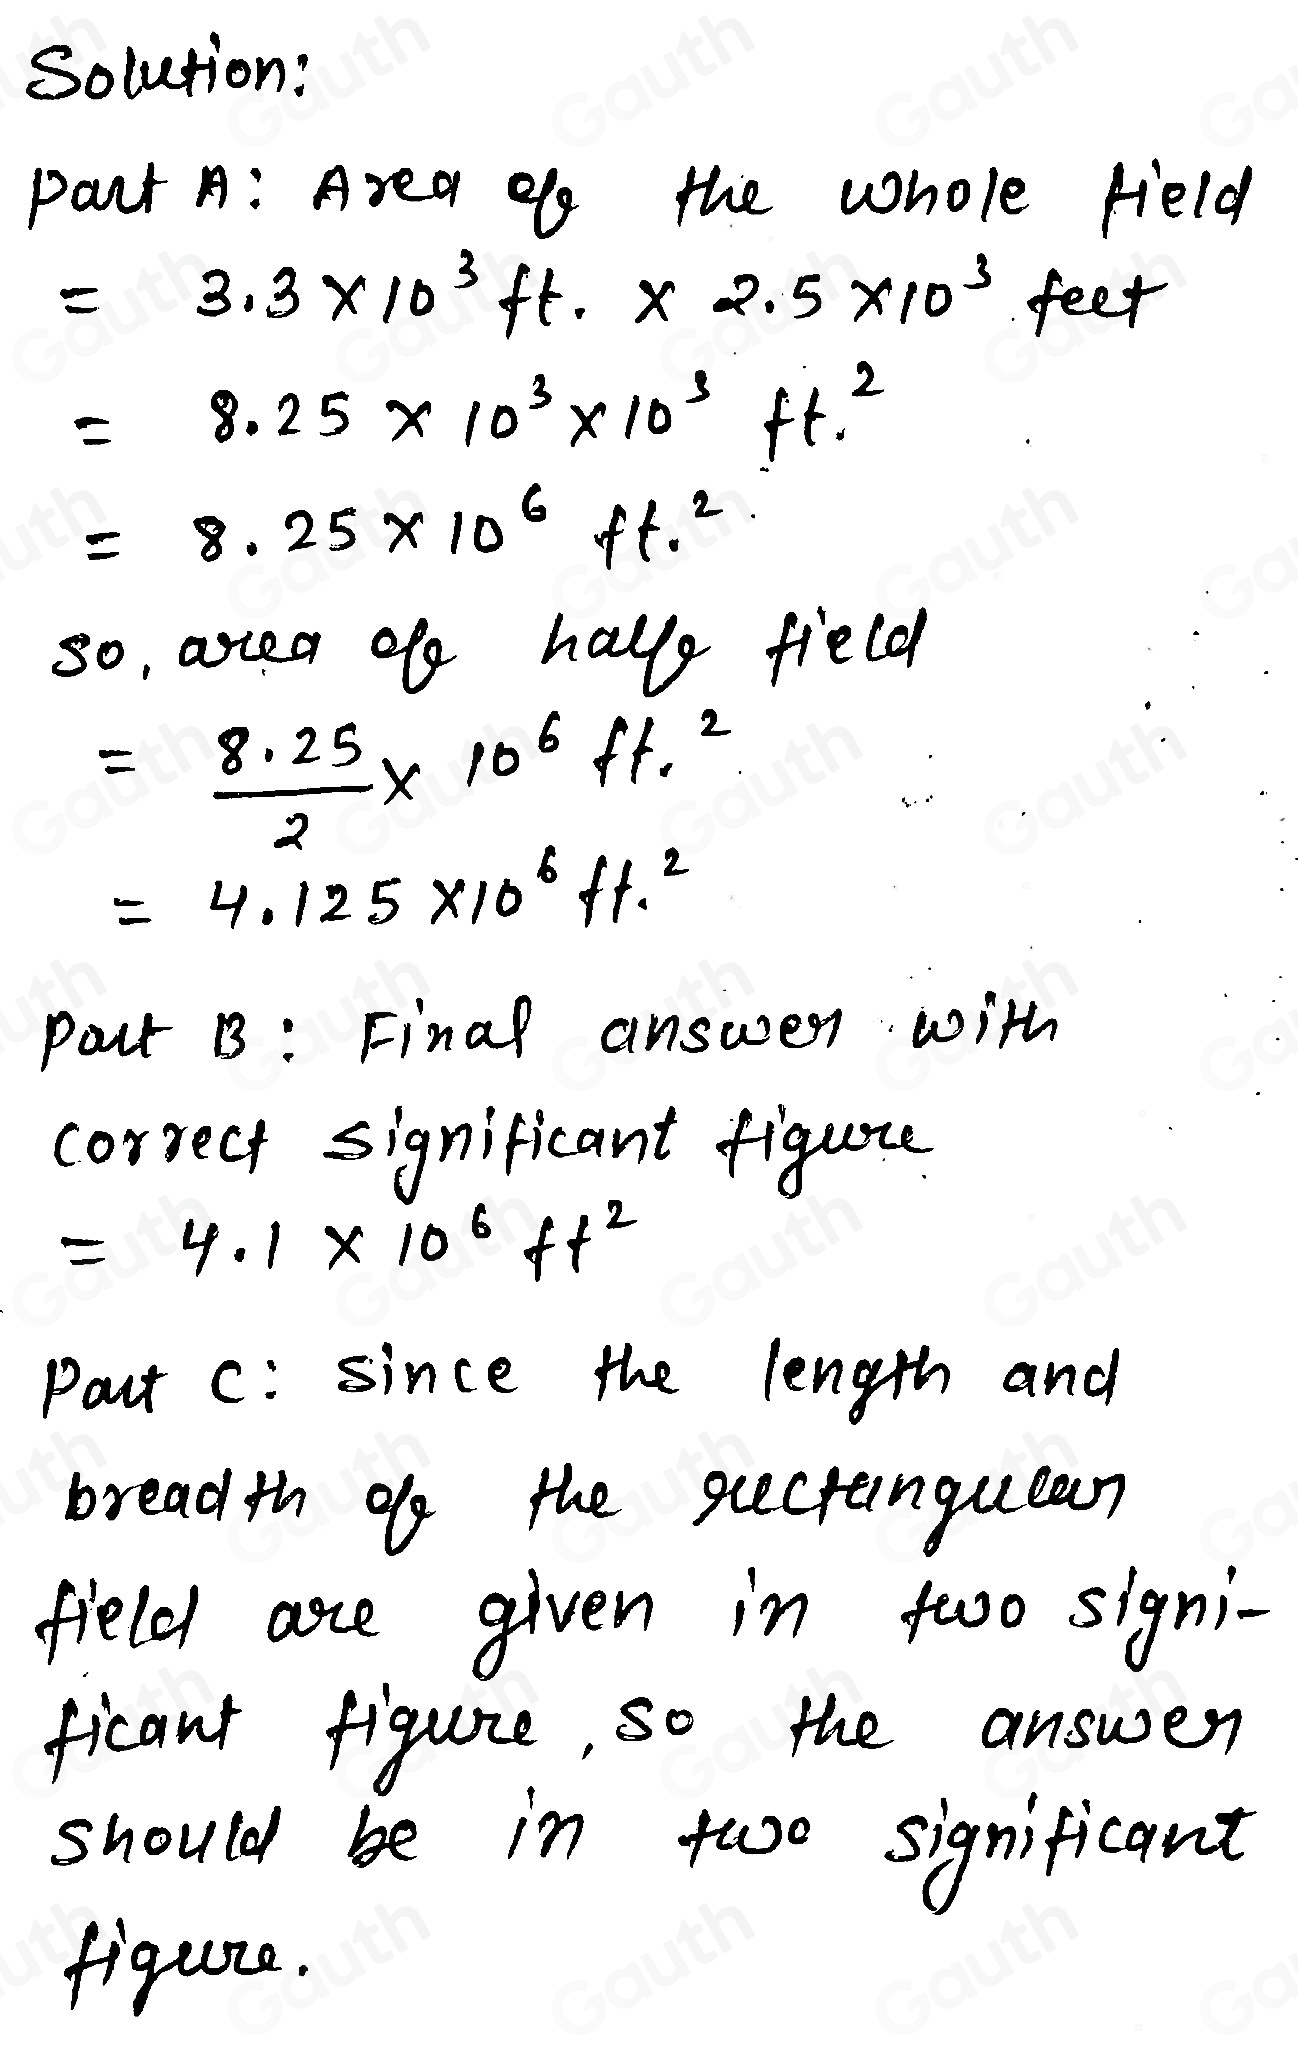 Solution:
Part A: Area of the whole field
= 3.3 × 10³ ft. × 2.5 × 10³ feet
= 8.25 × 10³ × 10³ ft.²
= 8.25 × 10⁶ ft.²
so, area of half field
= 8.25/2 × 10⁶ ft.²
= 4.125 × 10⁶ ft.²
Part B: Final answer with
correct significant figure
= 4.1 × 10⁶ ft²
Part C: since the length and
breadth of the rectangular
field are given in two signi-
ficant figure, so the answer
should be in two significant
figure.